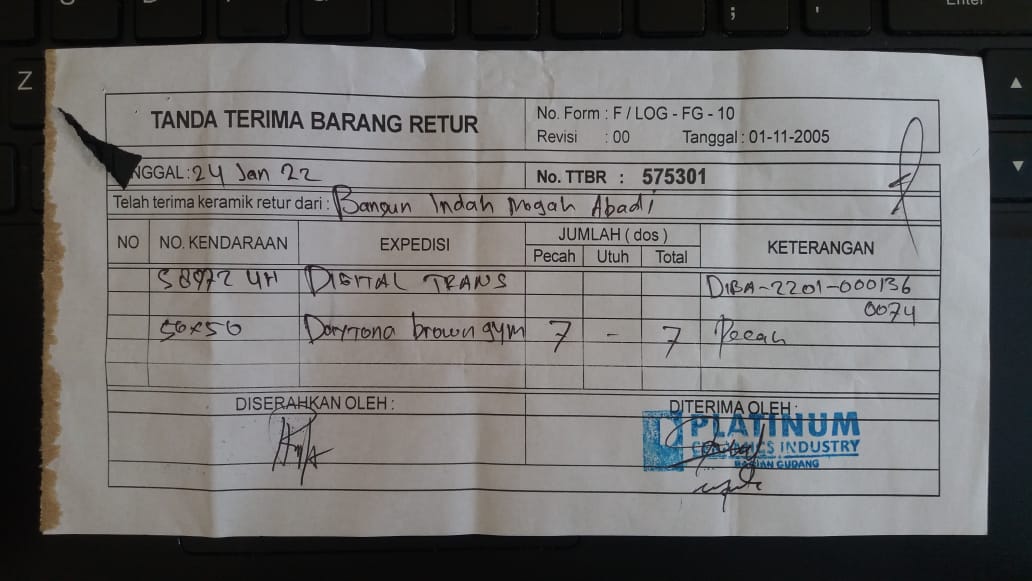 TANDA TERIMA BARANG RETUR
No. Form : F / LOG - FG - 10
Revisi : 00 Tanggal : 01-11-2005
NGGAL : 24 Jan 22
No. TTBR : 575301
Telah terima keramik retur dari : Bangun Indah Megah Abadi
NO NO. KENDARAAN EXPEDISI JUMLAH ( dos ) KETERANGAN
Pecah Utuh Total
S 8972 UH DIGITAL TRANS DIBA-2201-000136
0074
50x50 Daytona brown gym 7 - 7 Pecah
DISERAHKAN OLEH : DITERIMA OLEH :
PLATINUM
CERAMICS INDUSTRY
BAGIAN GUDANG
Z
;
Enter